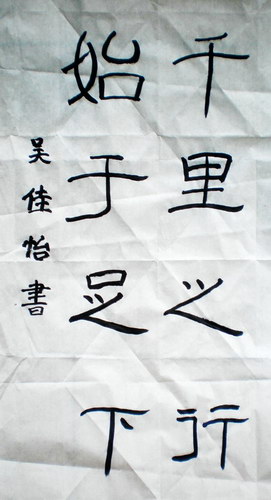 千里之行
始于足下
吴佳怡書